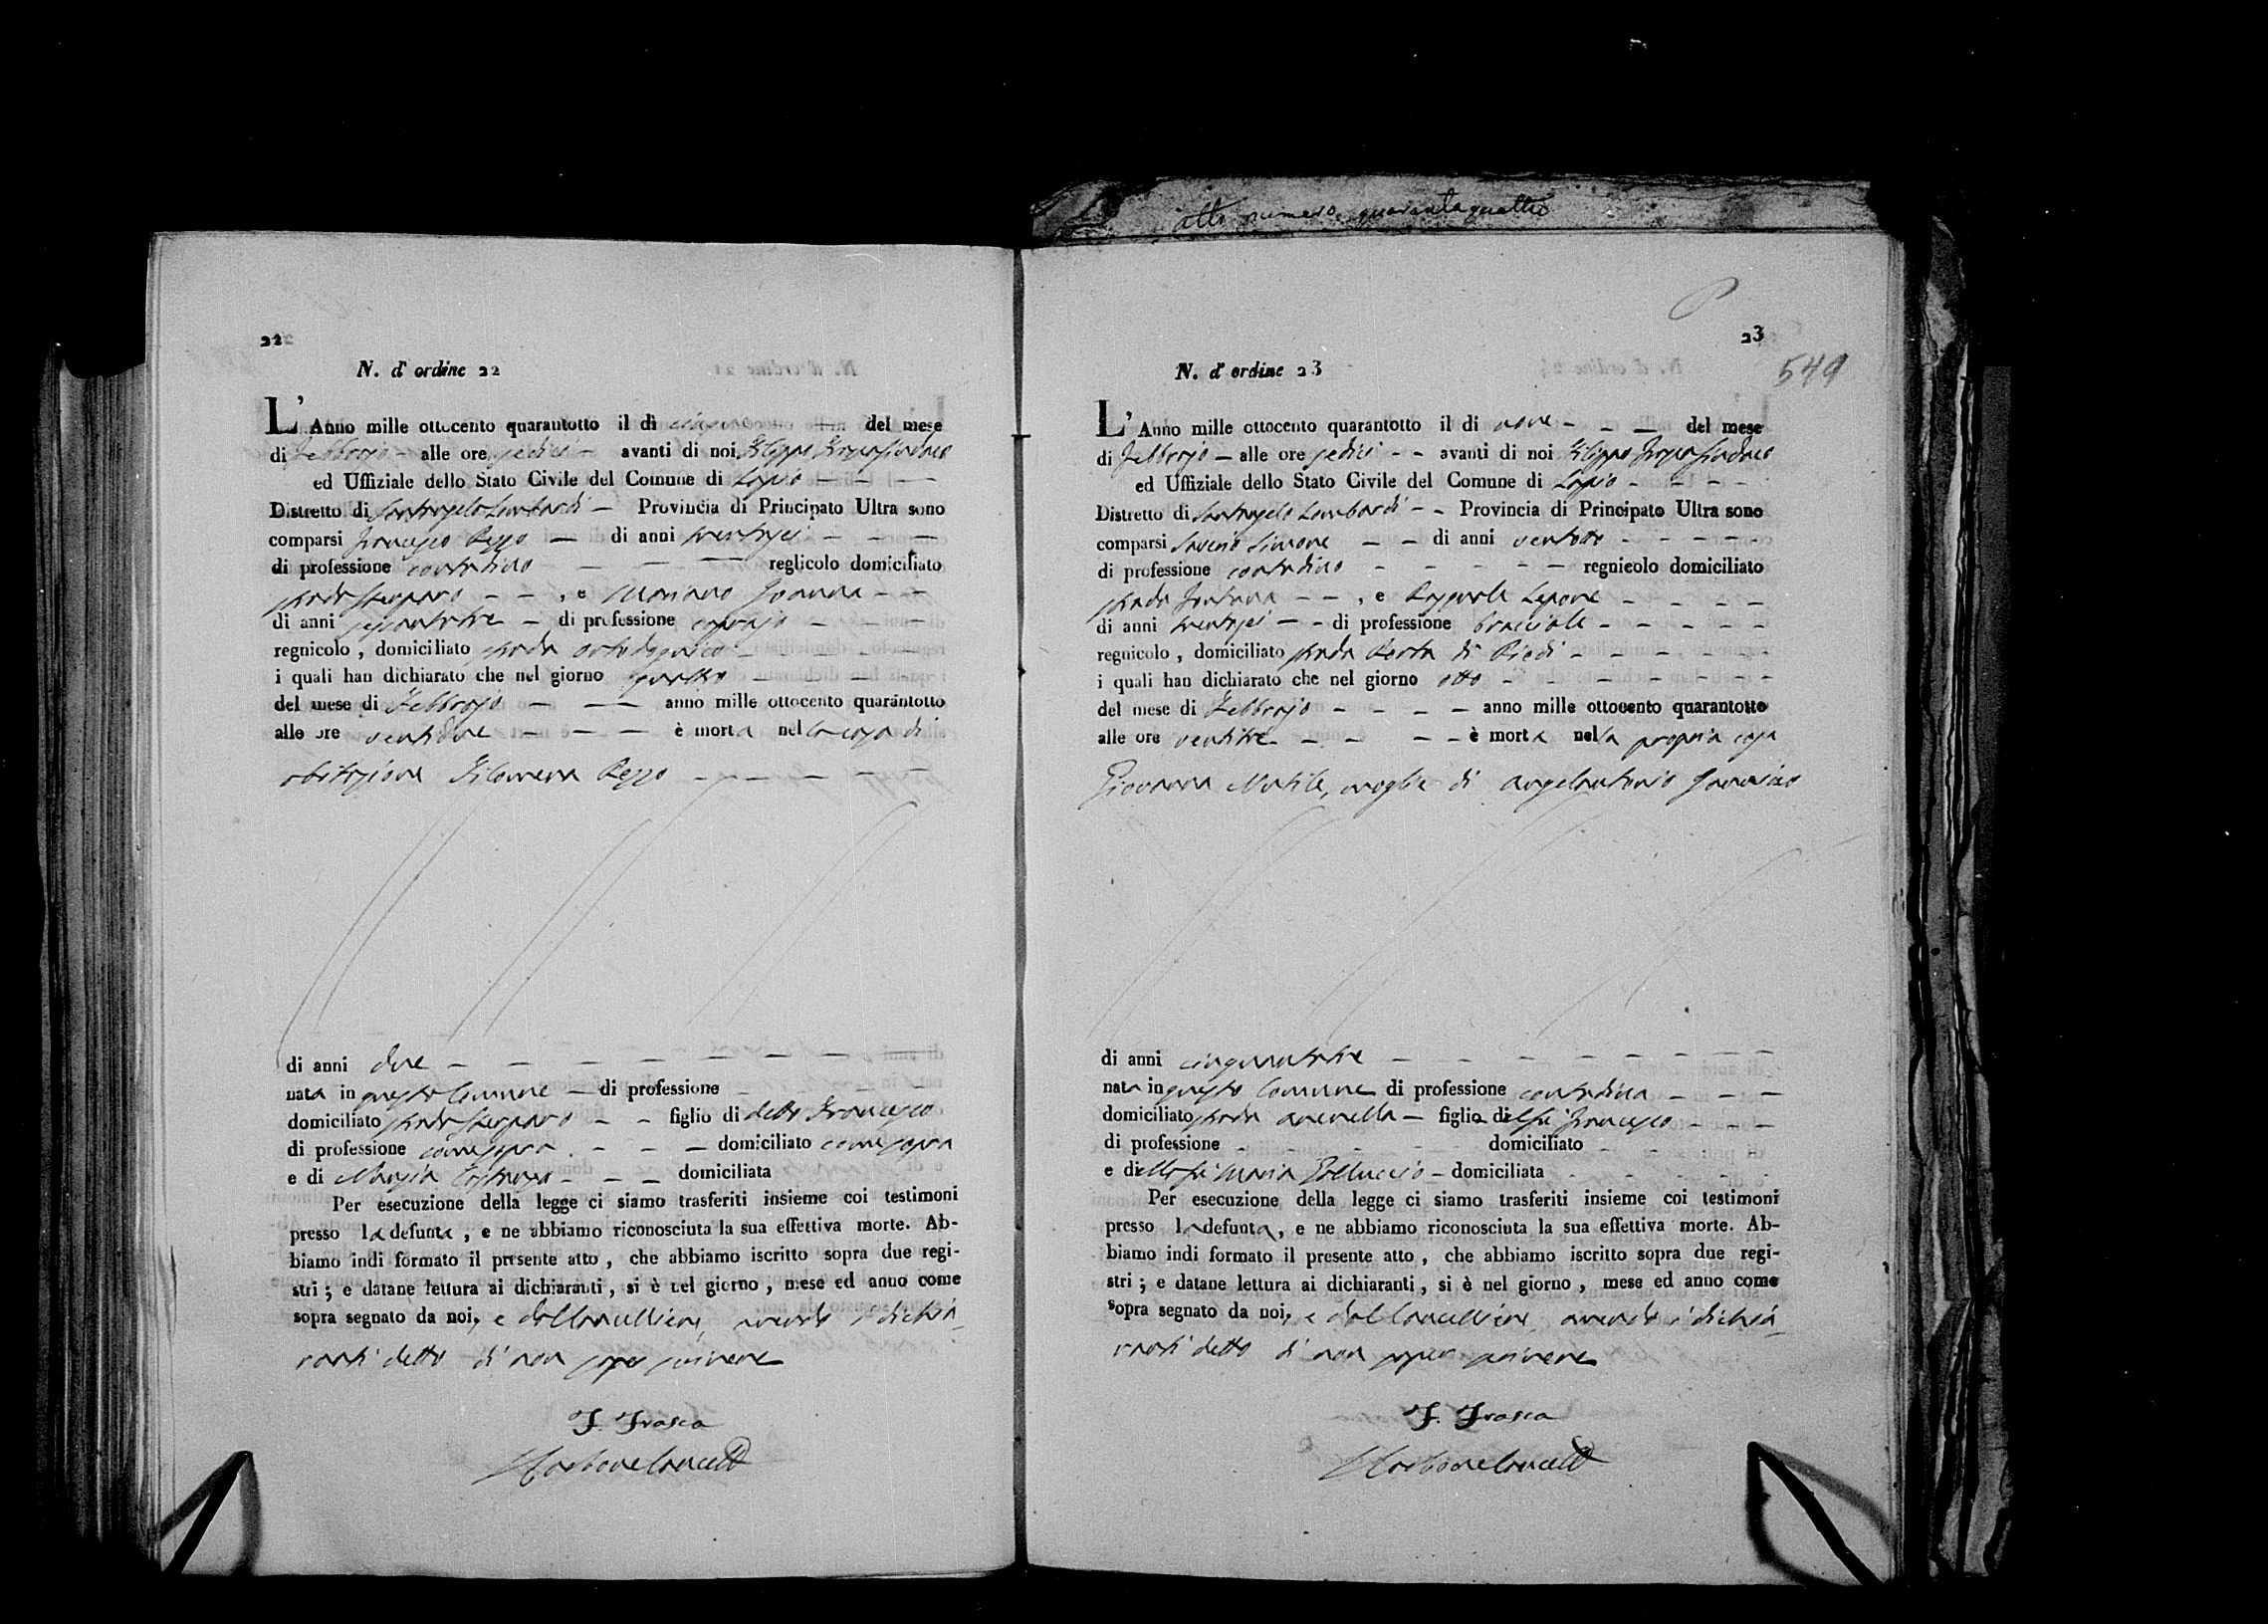 atto numero quarantaquattro
22
N. d' ordine 22
L'Anno mille ottocento quarantotto il dì cinque del mese
di Febbrajo alle ore sedici avanti di noi Filippo Frasca Sindaco
ed Uffiziale dello Stato Civile del Comune di Lapio
Distretto di Santangelo Lombardi Provincia di Principato Ultra sono
comparsi Francesco Rezzo di anni trentasei
di professione contadino reglicolo domiciliato
strada , e Mariano Joanna
di anni sessantatre di professione
regnicolo , domiciliato strada
i quali han dichiarato che nel giorno quattro
del mese di Febbrajo anno mille ottocento quarantotto
alle ore ventidue è morta nella casa di
abitazione Filomena Rezzo
di anni due
nata in questo Comune di professione
domiciliato strada figlio di detto Francesco
di professione come sopra domiciliato come sopra
e di domiciliata
Per esecuzione della legge ci siamo trasferiti insieme coi testimoni
presso la defunta , e ne abbiamo riconosciuta la sua effettiva morte. Ab-
biamo indi formato il presente atto , che abbiamo iscritto sopra due regi-
stri ; e datane lettura ai dichiaranti , si è nel giorno , mese ed anno come
sopra segnato da noi, e dal Cancelliere, avendo i dichia-
ranti detto di non saper scrivere
F. Frasca
23
549
N. d' ordine 23
L'Anno mille ottocento quarantotto il di nove del mese
di Febbrajo alle ore sedici avanti di noi Filippo Frasca Sindaco
ed Uffiziale dello Stato Civile del Comune di Lapio
Distretto di Santangelo Lombardi Provincia di Principato Ultra sono
comparsi Saverio Simone di anni ventotto
di professione contadino regnicolo domiciliato
strada Fontana , e Pasquale Lepore
di anni trentasei di professione bracciale
regnicolo , domiciliato strada Porta di Piedi
i quali han dichiarato che nel giorno otto
del mese di Febbrajo anno mille ottocento quarantotto
alle ore ventitre è morta nella propria casa
Giovanna Mutile, moglie di Angelantonio
di anni cinquantatre
nata in questo Comune di professione contadina
domiciliato strada figlia del fu Francesco
di professione domiciliato
e della fu Maria domiciliata
Per esecuzione della legge ci siamo trasferiti insieme coi testimoni
presso la defunta, e ne abbiamo riconosciuta la sua effettiva morte. Ab-
biamo indi formato il presente atto , che abbiamo iscritto sopra due regi-
stri ; e datane lettura ai dichiaranti, si è nel giorno , mese ed anno come
sopra segnato da noi, e dal Cancelliere avendo i dichia-
ranti detto di non saper scrivere
F. Frasca